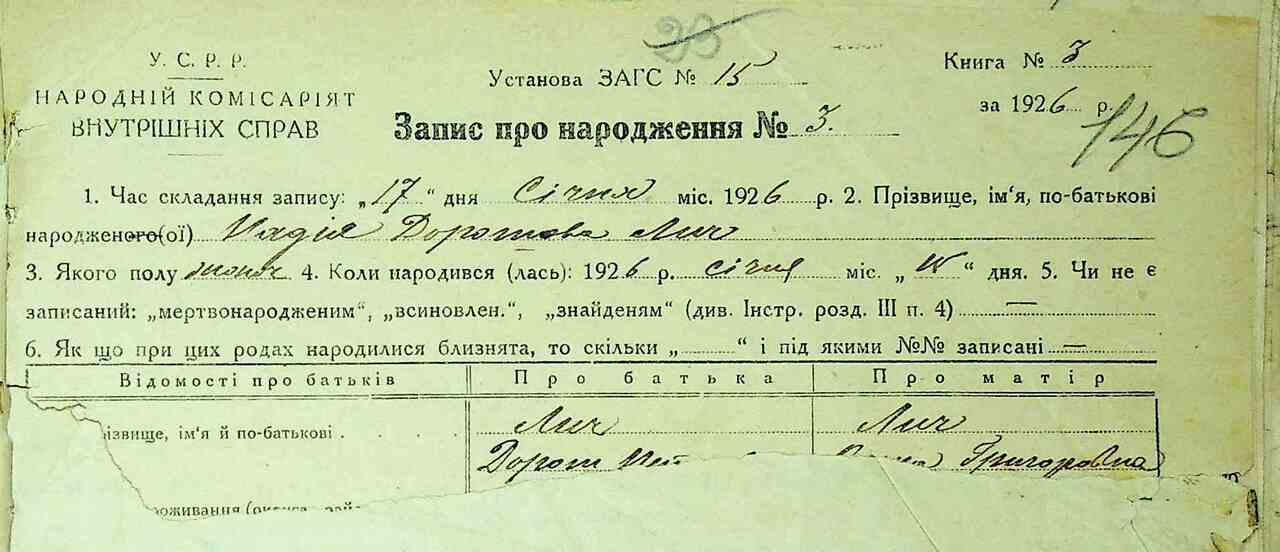 23
У. С. Р. Р.
НАРОДНІЙ КОМІСАРІЯТ
ВНУТРІШНІХ СПРАВ
Установа ЗАГС № 15
Книга № 3
за 1926 р.
146
Запис про народження № 3.
1. Час складання запису: „17“ дня Січня міс. 1926 р. 2. Прізвище, ім‘я, по-батькові
народженого(ої) Надія Доротова Лич
3. Якого полу 4. Коли народився (лась): 1926 р. січня міс. „ “ дня. 5. Чи не є
записаний: „мертвонародженим“, „всиновлен.“, „знайденям“ (див. Інстр. розд. III п. 4) —
6. Як що при цих родах народилися близнята, то скільки „ “ і під якими №№ записані —
Відомості про батьків Про батька Про матір
різвище, ім‘я й по-батькові . . . . Лич Лич
Дорот Григоровна